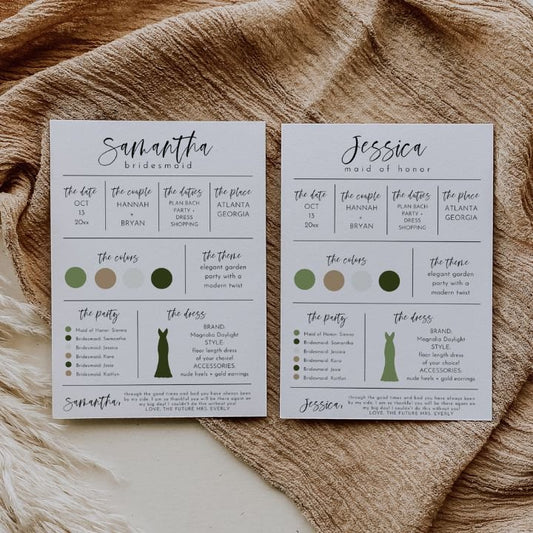 Samantha
bridesmaid
the date
OCT
13
20xx
the couple
HANNAH
+
BRYAN
the duties
PLAN BACH
PARTY +
DRESS
SHOPPING
the place
ATLANTA
GEORGIA
the colors
the theme
elegant garden
party with a
modern twist
the party
Maid of Honor: Sienna
Bridesmaid: Samantha
Bridesmaid: Jessica
Bridesmaid: Kara
Bridesmaid: Josie
Bridesmaid: Kaitlyn
the dress
BRAND:
Magnolia Daylight
STYLE:
floor length dress
of your choice!
ACCESSORIES:
nude heels + gold earrings
Samantha,
through the good times and bad you have always been
by my side. I am so thankful you will be there again on
my big day! I couldn't do this without you!
LOVE, THE FUTURE MRS. EVERLY
Jessica
maid of honor
the date
OCT
13
20xx
the couple
HANNAH
+
BRYAN
the duties
PLAN BACH
PARTY +
DRESS
SHOPPING
the place
ATLANTA
GEORGIA
the colors
the theme
elegant garden
party with a
modern twist
the party
Maid of Honor: Sienna
Bridesmaid: Samantha
Bridesmaid: Jessica
Bridesmaid: Kara
Bridesmaid: Josie
Bridesmaid: Kaitlyn
the dress
BRAND:
Magnolia Daylight
STYLE:
floor length dress
of your choice!
ACCESSORIES:
nude heels + gold earrings
Jessica,
through the good times and bad you have always been
by my side. I am so thankful you will be there again on
my big day! I couldn't do this without you!
LOVE, THE FUTURE MRS. EVERLY